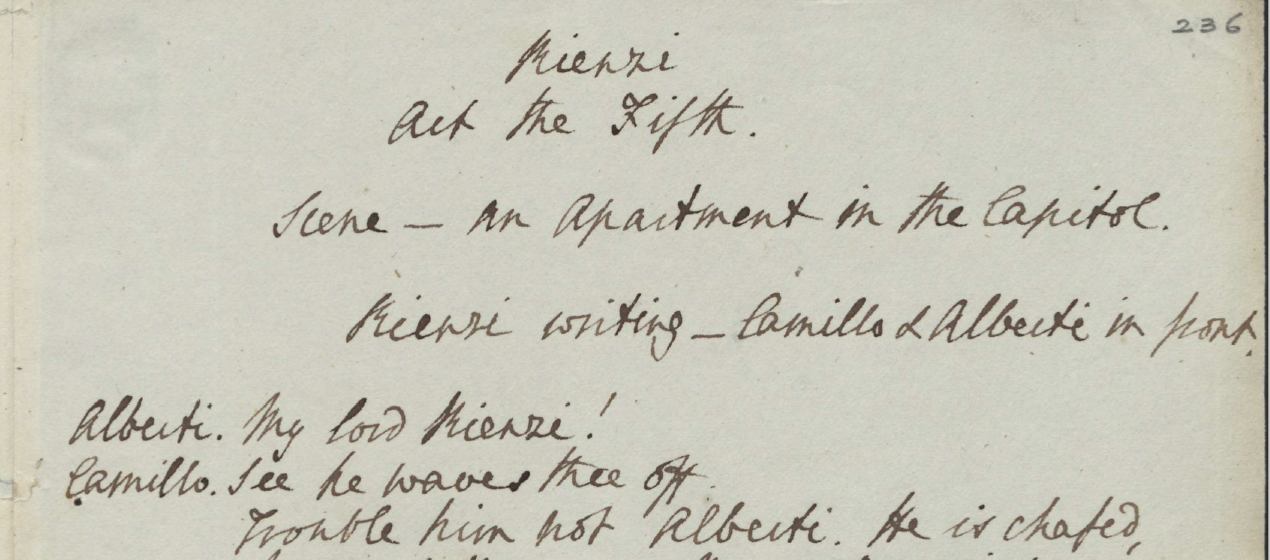 236
Rienzi
Act the Fifth.
Scene — An Apartment in the Capitol.
Rienzi writing — Camillo & Alberti in front.
Alberti. My lord Rienzi!
Camillo. See he waves thee off.
Trouble him not Alberti. He is chafed,